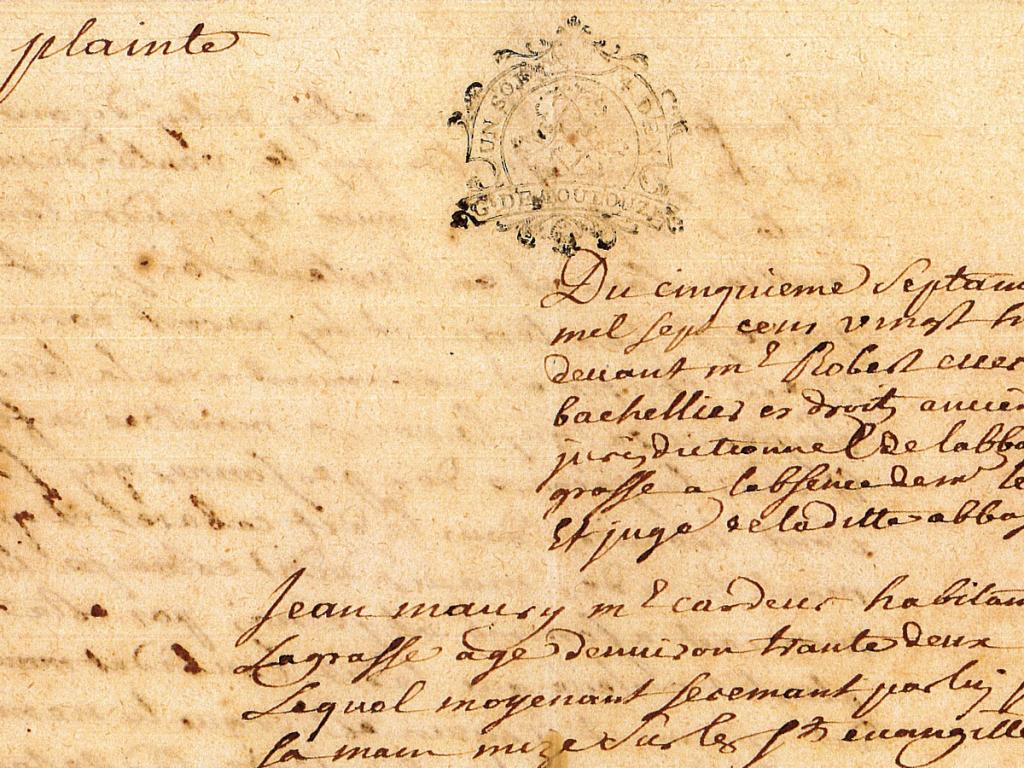 plainte
UN SOL 4 DE
G. DE TOULOUZE
Du cinquieme Septam
mel sept cens vingt h
devant mr Robert
bachellier es droits ancien
jurisdictionnel de labba
grasse a labsence de mr le
Et juge de laditte abbay
Jean maury mr cardeur habitan
Lagrasse agé denviron trante deux
Lequel moyenant seremant par luy p
sa main mize sur les sts evangille